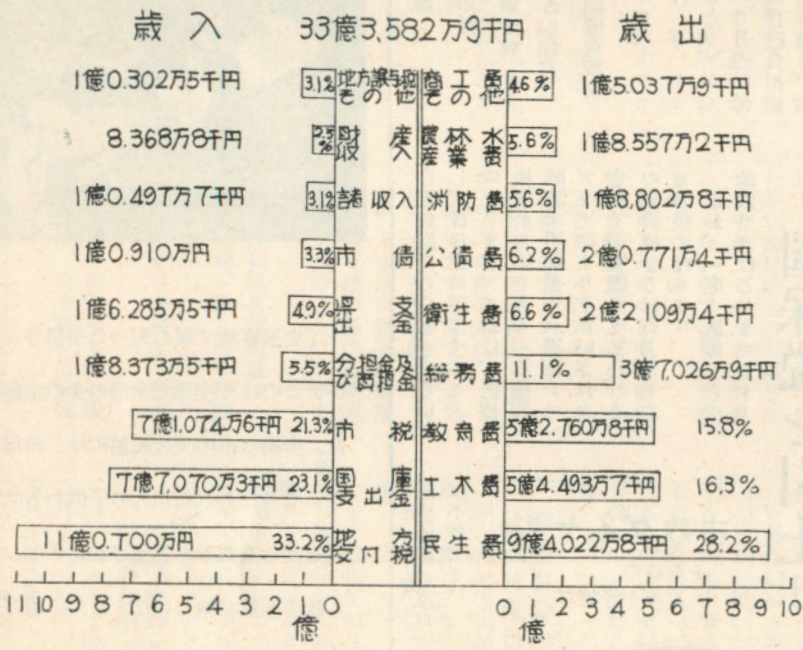 歳入 33億3,582万9千円 歳出
1億0.302万5千円 3.1% 地方譲与税その他 商工費その他 4.6% 1億5.037万9千円
8.368万8千円 2.5% 財産収入 農林水産業費 5.6% 1億8.557万2千円
1億0.497万7千円 3.1% 諸収入 消防費 5.6% 1億8,802万8千円
1億0.910万円 3.3% 市債 公債費 6.2% 2億0.771万4千円
1億6.285万5千円 4.9% 県支出金 衛生費 6.6% 2億2,109万4千円
1億8.373万5千円 5.5% 分担金及び負担金 総務費 11.1% 3億7,026万9千円
7億1.074万6千円 21.3% 市税 教育費 5億2.760万8千円 15.8%
7億7,070万3千円 23.1% 国庫支出金 土木費 5億4.493万7千円 16.3%
11億0.700万円 33.2% 地方交付税 民生費 9億4.022万8千円 28.2%
11 10 9 8 7 6 5 4 3 2 1 0 0 1 2 3 4 5 6 7 8 9 10
億 億